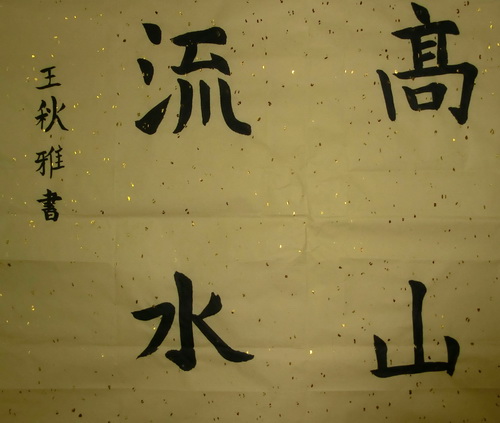 髙山
流水
王秋雅書